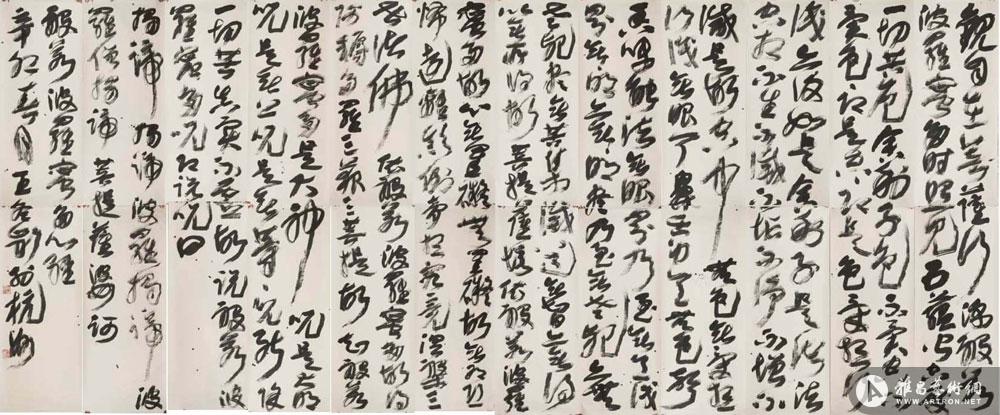 觀自在菩薩行深般若
波羅蜜多時照見五蘊皆空度
一切苦厄舍利子色不異空空不
異色色即是空空即是色受想行
識亦復如是舍利子是諸法
空相不生不滅不垢不淨不增不
減是故空中無色無受想
行識無眼耳鼻舌身意無色聲
香味觸法無眼界乃至無意識
界無無明亦無無明盡乃至無老死亦無
老死盡無苦集滅道無智亦無得
以無所得故菩提薩埵依般若波羅
蜜多故心無罣礙無罣礙故無有恐
怖遠離顛倒夢想究竟涅槃三
世諸佛依般若波羅蜜多故得
阿耨多羅三藐三菩提故知般若
波羅蜜多是大神咒是大明
咒是無上咒是無等等咒能除
一切苦真實不虛故說般若波
羅蜜多咒即說咒曰
揭諦揭諦波羅揭諦波
羅僧揭諦菩提薩婆訶
般若波羅蜜多心經
辛卯春月王冬齡於杭州
雅昌藝術網
WWW.ARTRON.NET